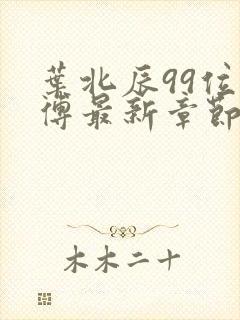 葉北辰99位
傅最新章節
木木二十